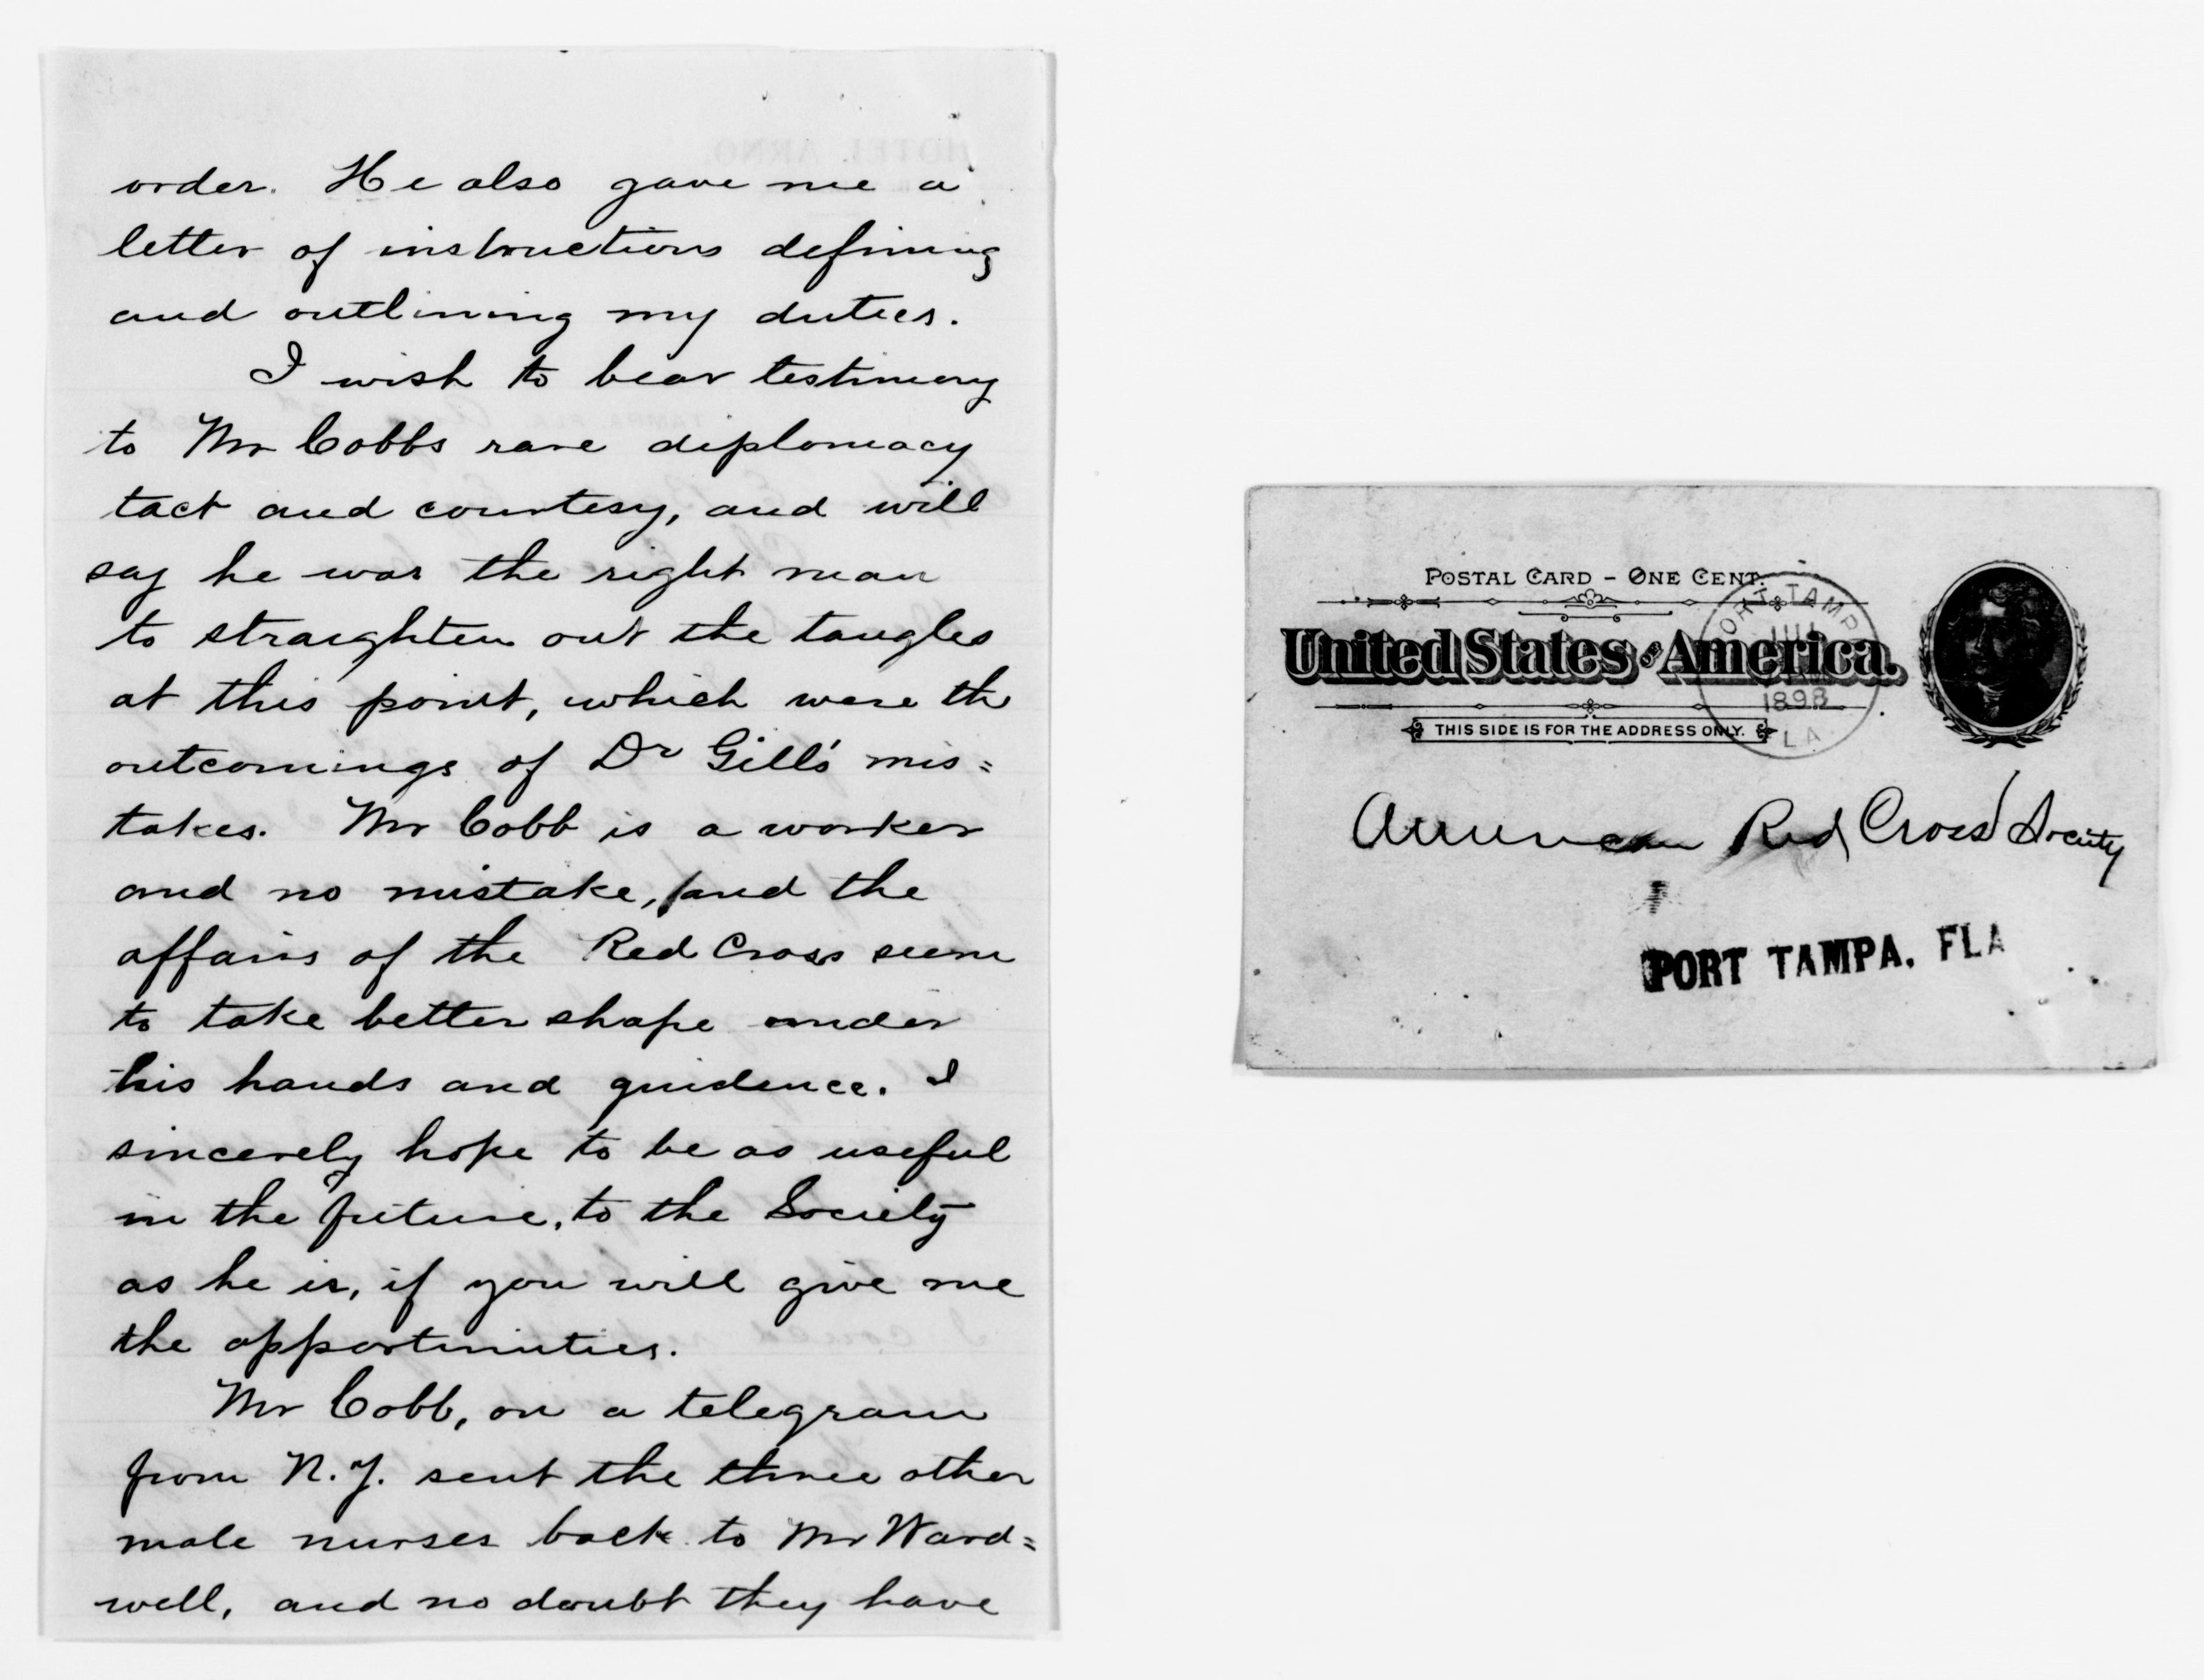 order. He also gave me a
letter of instructions defining
and outlining my duties.
I wish to bear testimony
to Mr Cobbs rare diplomacy
tact and courtesy, and will
say he was the right man
to straighten out the tangles
at this point, which were the
outcomings of Dr Gill's mis=
takes. Mr Cobb is a worker
and no mistake, and the
affairs of the Red Cross seem
to take better shape under
his hands and guidence. I
sincerely hope to be as useful
in the future, to the Society
as he is, if you will give me
the opportunities.
Mr Cobb, on a telegram
from N.Y. sent the three other
male nurses back to Mr Ward=
well, and no doubt they have
POSTAL CARD - ONE CENT.
United States of America.
THIS SIDE IS FOR THE ADDRESS ONLY.
PORT TAMPA
1898
FLA
American Red Cross Society
PORT TAMPA, FLA